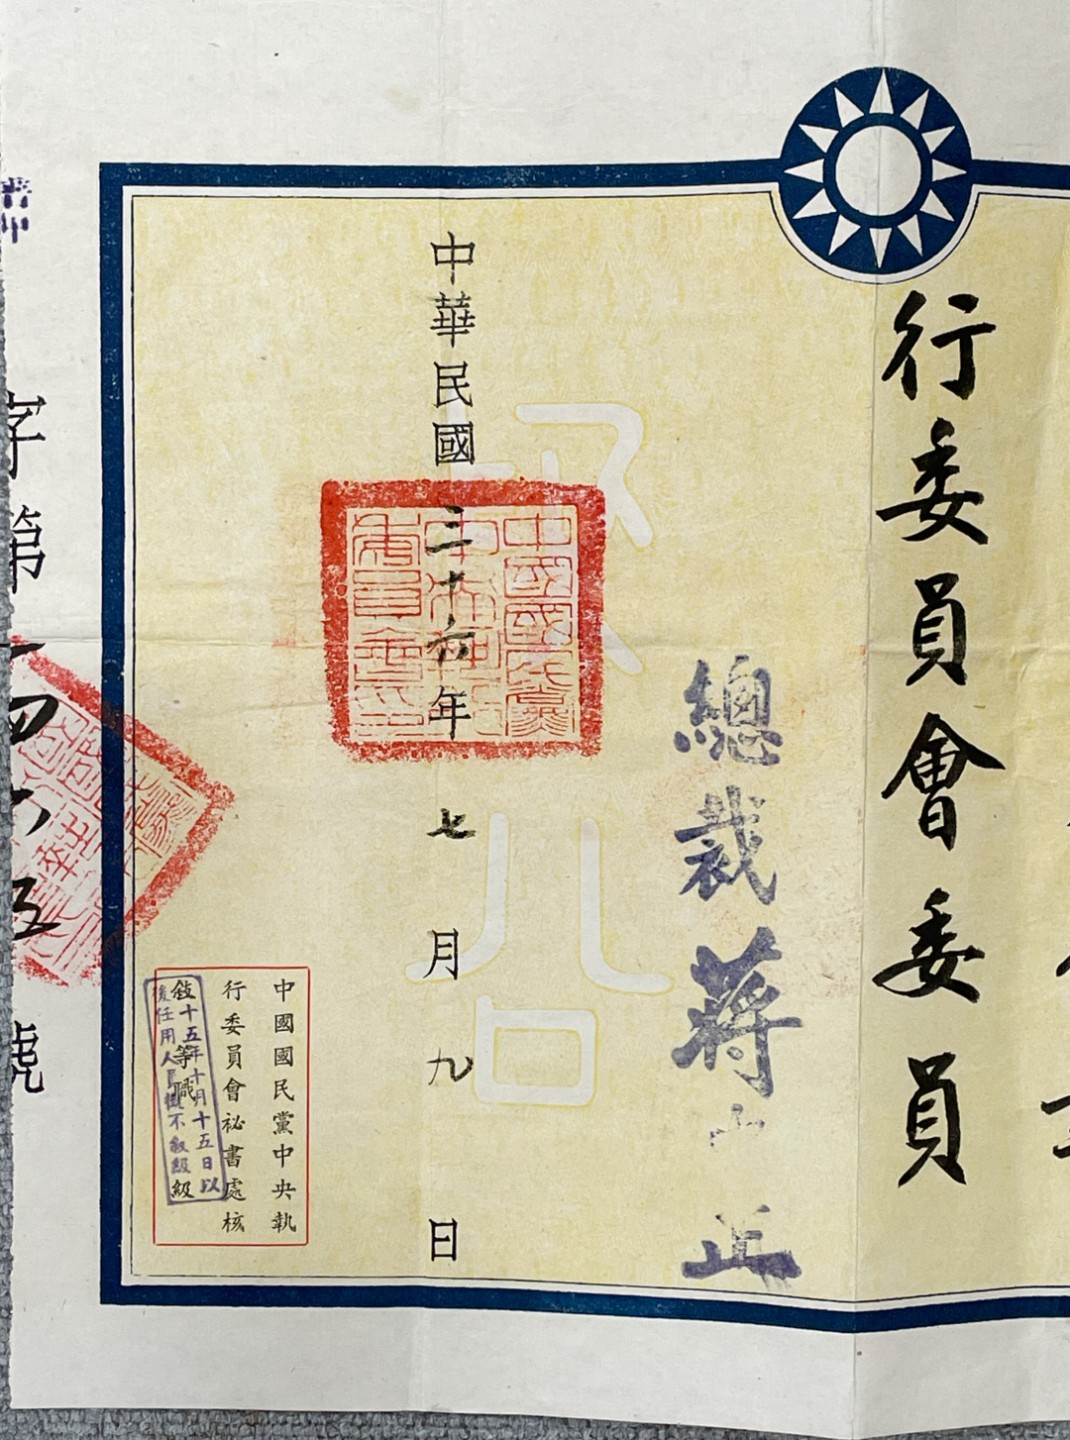 行委員會委員
總裁蔣中正
中華民國三十六年七月九日
中國國民黨
中央執行
委員會印
中國國民黨中央執
行委員會祕書處核
敍等職級
十五年十月十五日以
後任用人員概不敘級
字第一四六五號